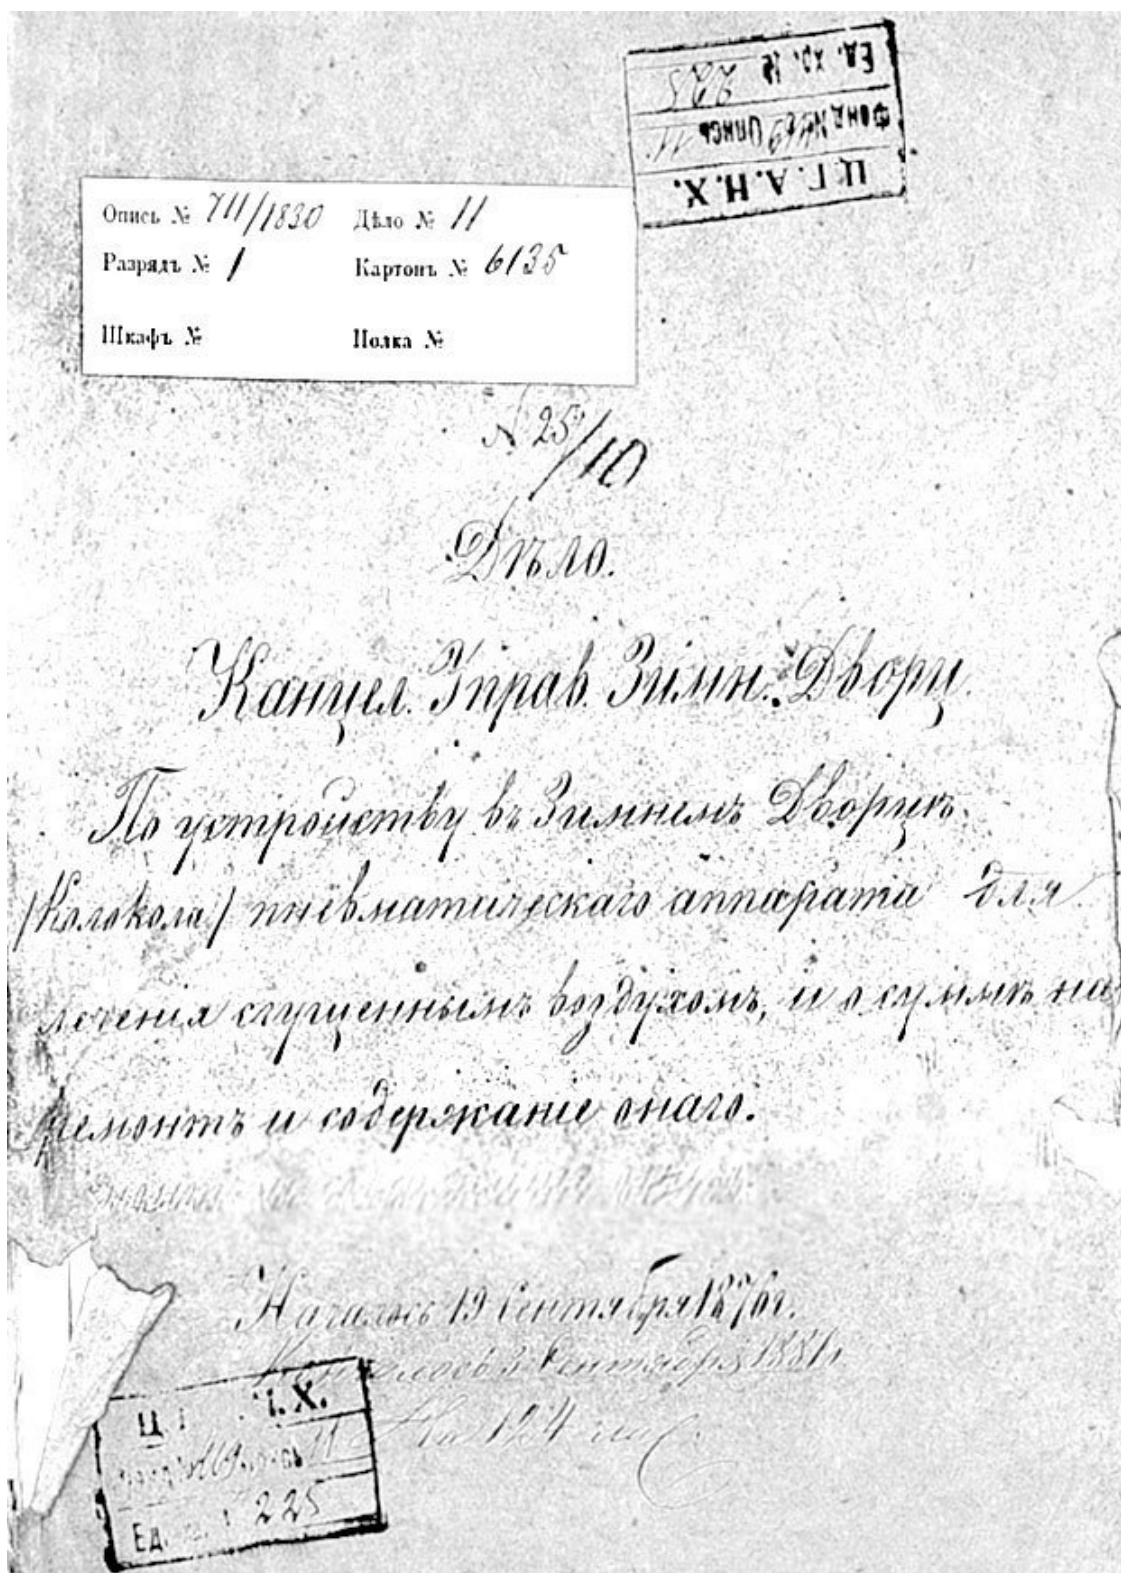 Ц.Г.А.Н.Х.
Фонд № 469 Опись 11
Ед. хр. № 225
Опись № 711/1830 Дѣло № 11
Разрядъ № 1 Картонъ № 6135
Шкафъ № Полка №
№ 25/10
Дѣло.
Канцел. Управ. Зимн. Дворц.
По устройству въ Зимнемъ Дворцѣ
/Колокола/ пневматическаго аппарата для
леченія сгущеннымъ воздухомъ, и о суммѣ на
ремонтъ и содержаніе онаго.
Началось 19 Сентября 1876 г.
Кончилось 3 Сентября 1881 г.
На 124 лис.
Ц. Х.
469 11
Ед. 225